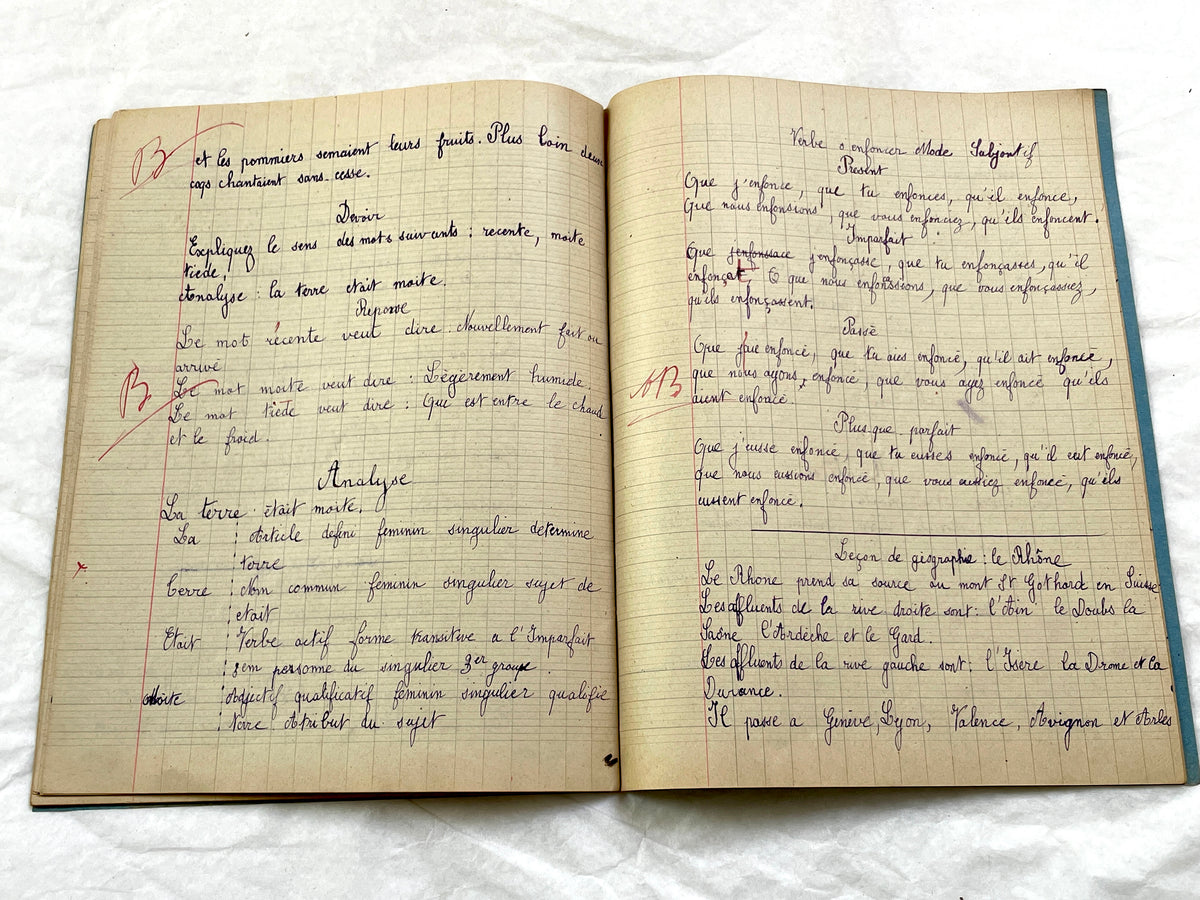 B
et les pommiers semaient leurs fruits. Plus loin deux
coqs chantaient sans-cesse.
Devoir
Expliquez le sens des mots suivants : recente, moite
tiède,
Analyse : la terre etait moite.
Reponse
Le mot récente veut dire : Nouvellement fait ou
arrivé
B
Le mot moite veut dire : Lègèrement humide.
Le mot tiède veut dire : Que est entre le chaud
et le froid.
Analyse
La terre était moite.
La : Article defini feminin singulier determine
terre
Terre : Nom commun feminin singulier sujet de
etait
Etait : Verbe actif forme transitive a l'Imparfait
3em personne du singulier 3er groupe
Moite : Adjectif qualificatif feminin singulier qualifie
terre Atribut du sujet
Verbe enfoncer Mode Subjontif
Present
Que j'enfonce, que tu enfonces, qu'il enfonce,
Que nous enfonsions, que vous enfonciez, qu'ils enfoncent.
Imparfait
Que jenfonssace jenfonçasse, que tu enfonçasses, qu'il
enfonçat, que nous enfonssions, que vous enfonçassiez,
qu'ils enfonçassent.
Passé
Que j'aie enfoncé, que tu aies enfoncé, qu'il ait enfoncé,
AB
que nous ayons enfoncé, que vous ayez enfoncé qu'ils
aient enfoncé.
Plus-que parfait
Que j'eusse enfoncé, que tu eusses enfoncé, qu'il eut enfoncé,
que nous eussions enfoncé, que vous eussiez enfoncé, qu'ils
eussent enfoncé.
Leçon de géographie : le Rhône
Le Rhone prend sa source au mont St Gothard en Suisse
Les affluents de la rive droite sont : l'Ain le Doubs la
Saône l'Ardèche et le Gard.
Les affluents de la rive gauche sont : l'Isère la Drome et la
Durance.
Il passe a Genève, Lyon, Valence, Avignon et Arles